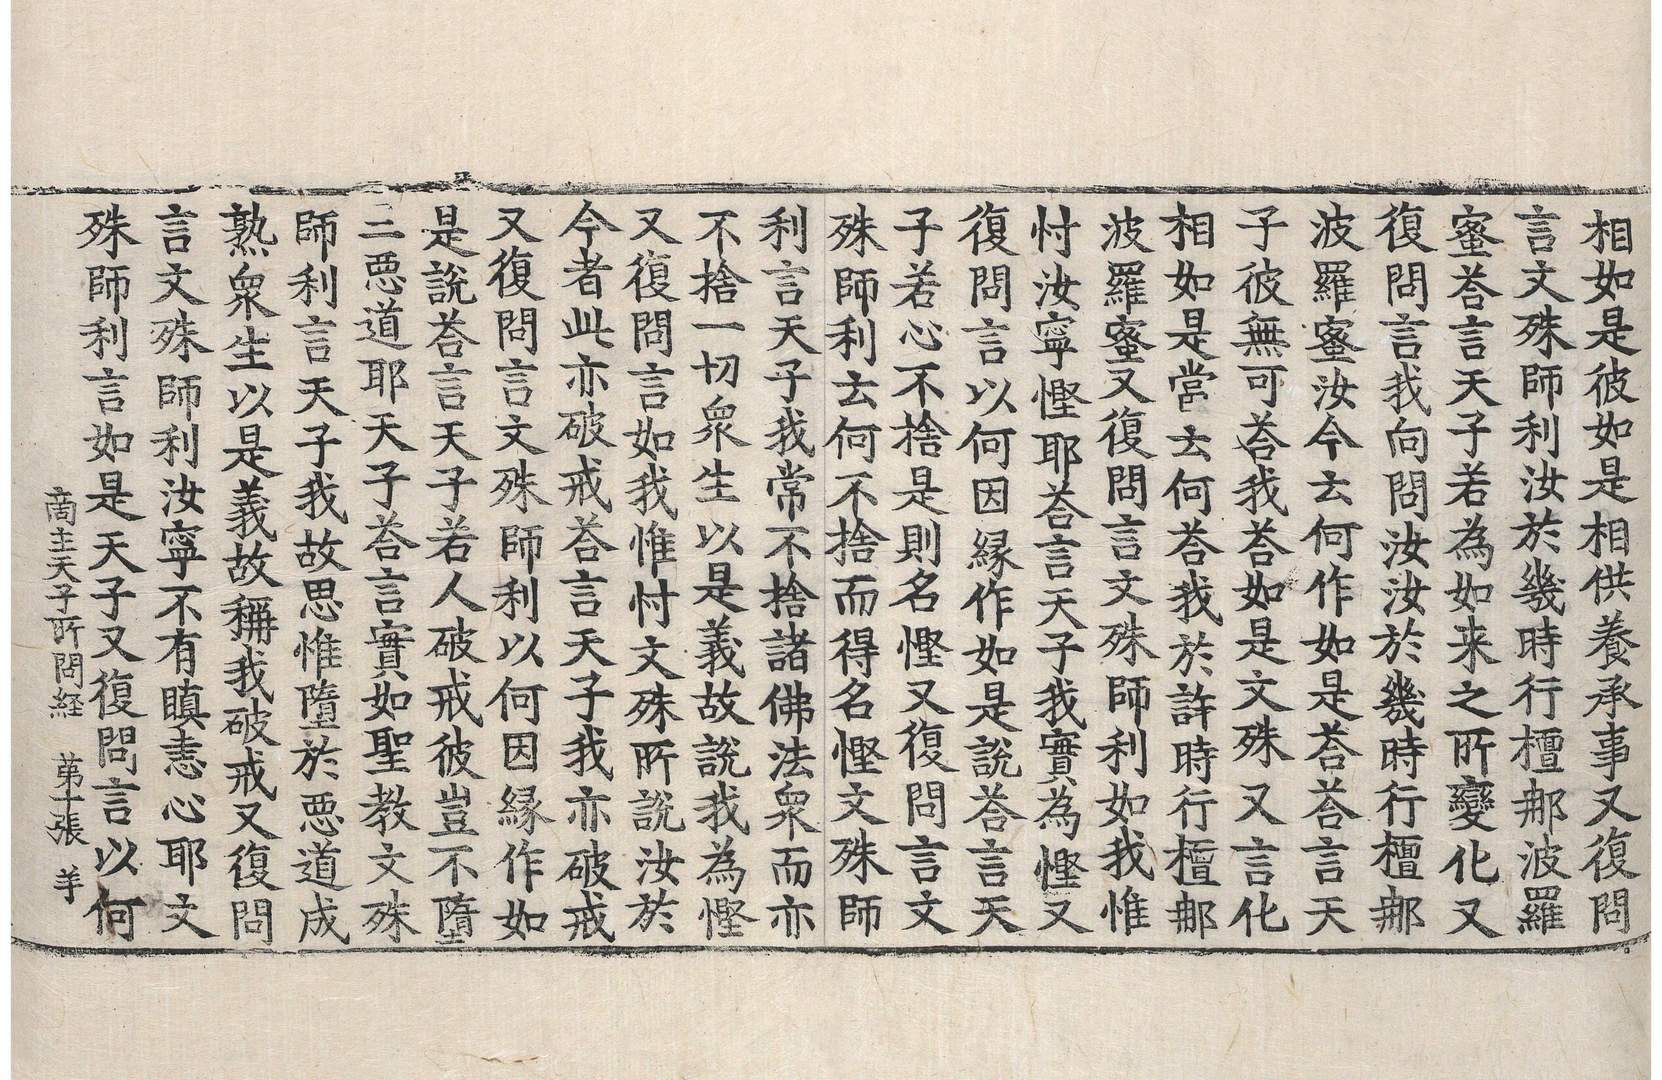 相如是彼如是相供養承事又復問
言文殊師利汝於幾時行檀那波羅
蜜荅言天子若為如来之所變化又
復問言我向問汝汝於幾時行檀那
波羅蜜汝今云何作如是荅荅言天
子彼無可荅我荅如是文殊又言化
相如是當云何荅我於許時行檀那
波羅蜜又復問言文殊師利如我惟
忖汝寧慳耶荅言天子我實為慳又
復問言以何因縁作如是說荅言天
子若心不捨是則名慳又復問言文
殊師利云何不捨而得名慳文殊師
利言天子我常不捨諸佛法衆而亦
不捨一切衆生以是義故說我為慳
又復問言如我惟忖文殊所說汝於
今者此亦破戒荅言天子我亦破戒
又復問言文殊師利以何因縁作如
是說荅言天子若人破戒彼豈不墮
三惡道耶天子荅言實如聖教文殊
師利言天子我故思惟墮於惡道成
熟衆生以是義故稱我破戒又復問
言文殊師利汝寧不有瞋恚心耶文
殊師利言如是天子又復問言以何
商主天子所問経 苐十張 羊